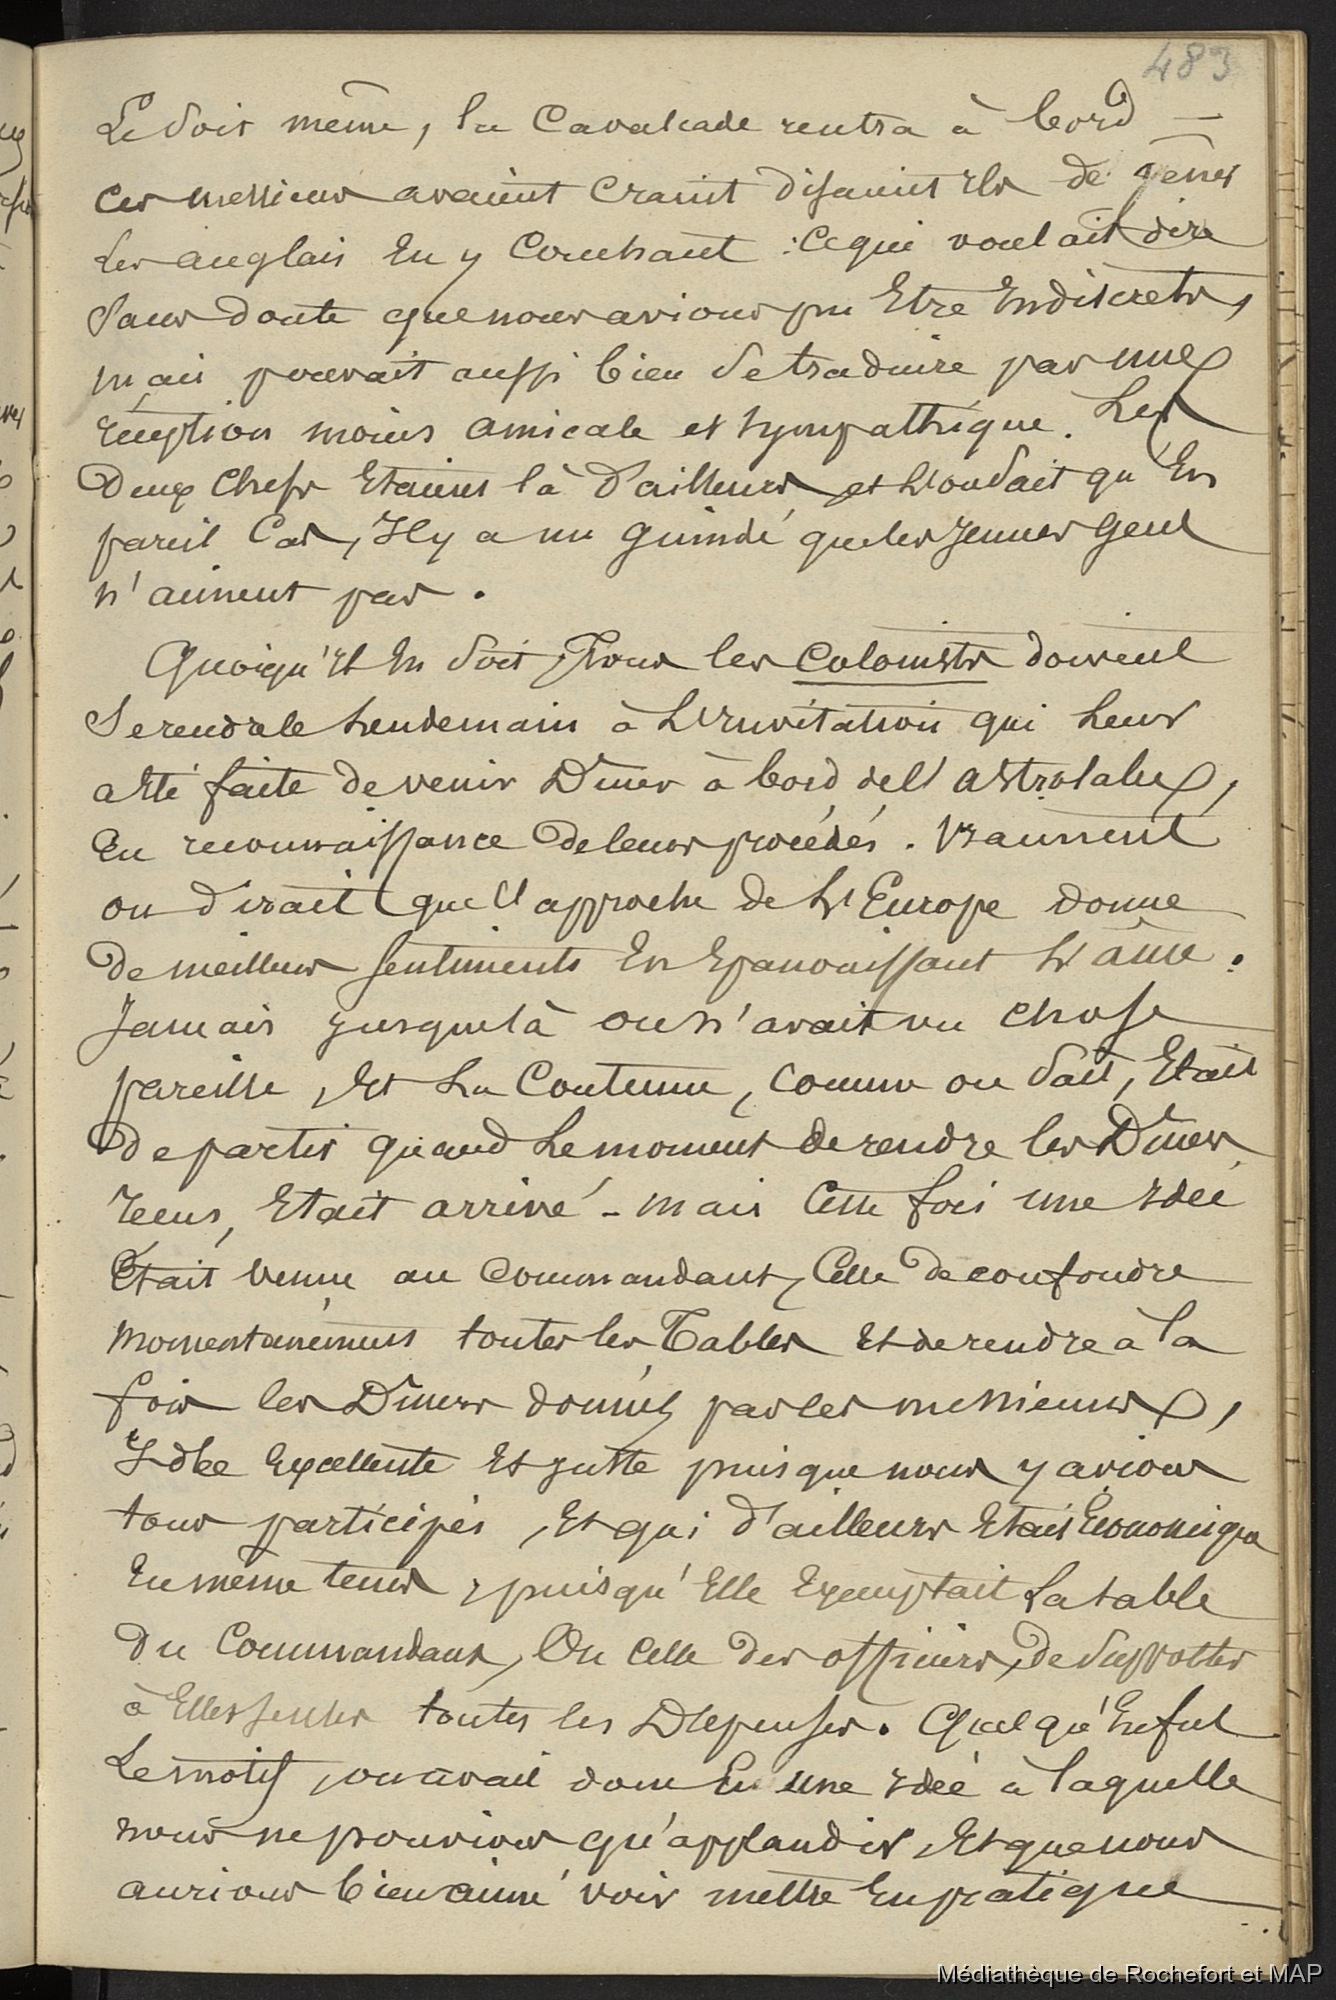 483
Le soir même, la Cavalcade rentra à bord —
ces messieurs avaient craint disaient ils de gêner
les anglais En y Couchant : Ce qui voulait dire
sans doute que nous avions pu Etre Indiscrets,
mais pouvait aussi bien se traduire par une
réception moins amicale et sympathique. Les
deux Chefs Etaient là d'ailleurs et l'on sait qu'En
pareil Cas, Il y a un guindé que les Jeunes Gens
n'aiment pas.
Quoiqu'Il En soit, Tous les Colonists doivent
se rendre le lendemain à L'Invitation qui leur
a Eté faite de venir Dîner à bord de l'Astrolabe,
En reconnaissance de leurs procédés. Vraiment
on dirait que l'approche de L'Europe donne
de meilleurs sentiments En Epanouissant L'âme.
Jamais jusque là on n'avait vu chose
pareille, Et La Coutume, comme on sait, Etait
de partir quand le moment de rendre les Dîners
reçus, Etait arrivé - mais Cette fois une Idée
Etait venue au Commandant, Celle de confondre
momentanément toutes les Tables Et de rendre à la
fois les Dîners donnés par les messieurs,
Idée Excellente Et juste puisque nous y avions
tous participés, Et qui d'ailleurs Etait Economique
En même tems, puisqu'Elle Exemptait La table
du Commandant, Ou Celle des officiers, de supporter
à Elles seules toutes les Dépenses. Quel qu'En fut
Le motif, on avait donc Eu une Idée à laquelle
nous ne pouvions qu'applaudir, Et que nous
aurions bien aimé voir mettre En pratique
Médiathèque de Rochefort et MAP